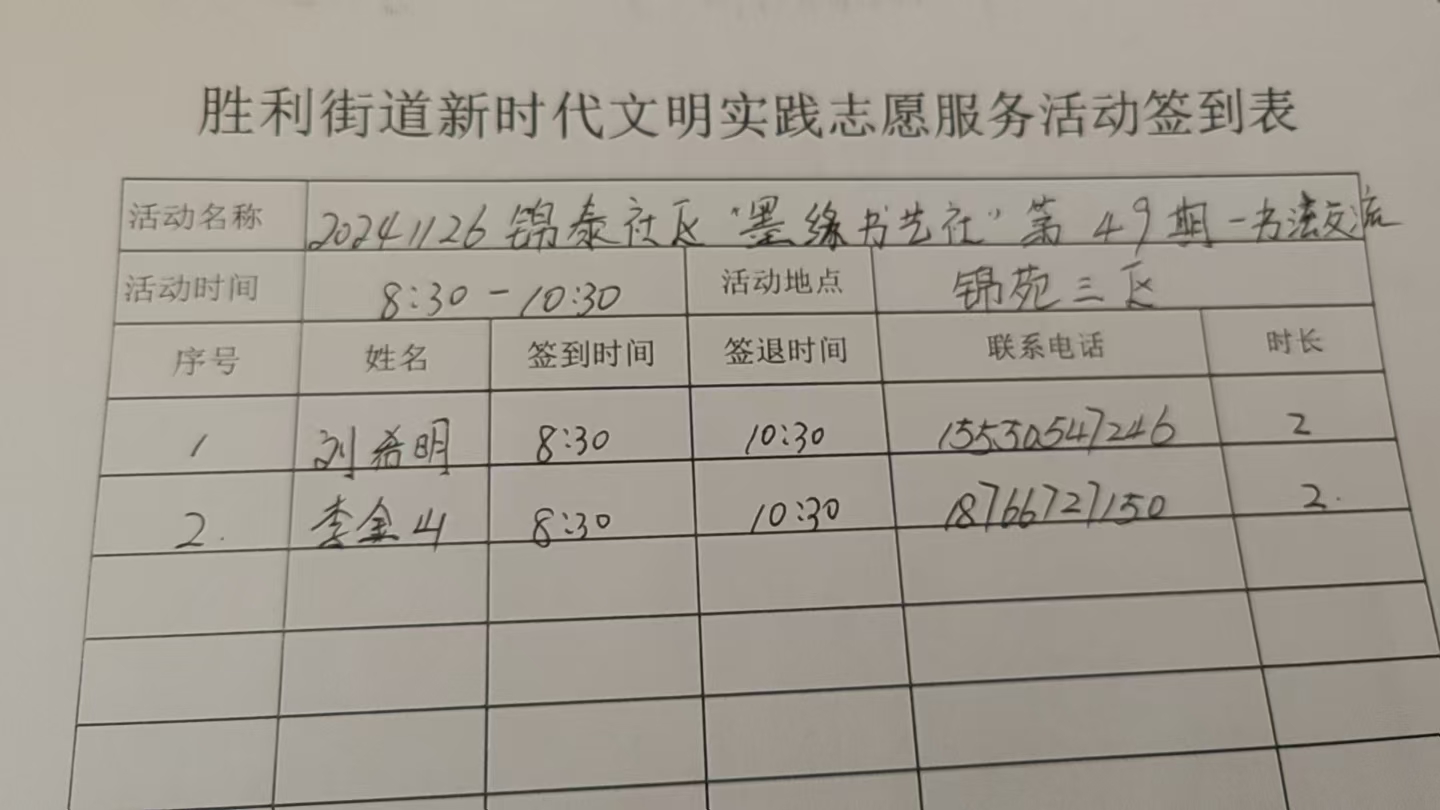 胜利街道新时代文明实践志愿服务活动签到表
活动名称 20241126锦泰社区"墨缘书艺社"第49期-书法交流
活动时间 8:30-10:30 活动地点 锦苑三区
序号 姓名 签到时间 签退时间 联系电话 时长
1 刘希明 8:30 10:30 15530547246 2
2. 李金山 8:30 10:30 18766727150 2.